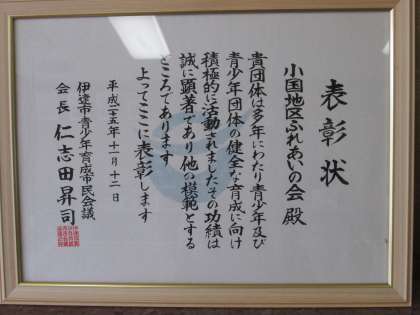 表彰状
小国地区ふれあいの会 殿
貴団体は多年にわたり青少年及び
青少年団体の健全な育成に向け
積極的に活動されましたその功績は
誠に顕著であり他の模範とする
ところであります
よってここに表彰します
平成二十五年十一月十二日
伊達市青少年育成市民会議
会長 仁志田昇司